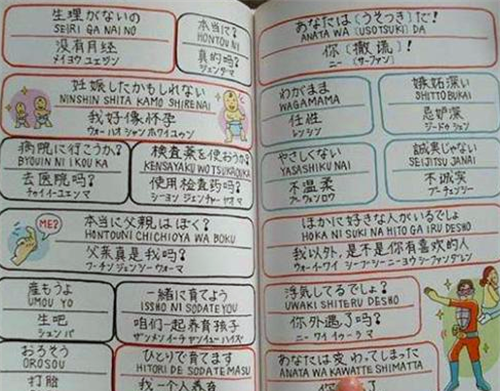 生理がないの
SEIRI GA NAI NO
没有月经
メイヨウ ユエヅン
本当に?
HONTOU NI
真的吗?
ジェンダマ
妊娠したかもしれない
NINSHIN SHITA KAMO SHIRENAI
我好像怀孕
ウォー ハオ シャン ホワイ ユゥン
病院に行こうか?
BYOUIN NI IKOU KA
去医院吗?
チャイ-ユエンマ
検査薬を使おうか?
KENSAYAKU WO TSUKAOUKA
使用检查药吗?
シーヨン ジェンチャー ヤオマ
ME?
本当に父親はぼく?
HONTOUNI CHICHIOYA WA BOKU
父亲真是我吗?
フーチン ジェンシー ウォーマ
産もうよ
UMOU YO
生吧
シェンバ
一緒に育てよう
ISSHO NI SODATE YOU
咱们一起养育孩子
おろそう
OROSOU
打胎
ひとりで育てます
HITORI DE SODATE MASU
我一个人养育
あなたは(うそつき)だ!
ANATA WA (USOTSUKI) DA
你(撒谎)!
ニー (サーファン)
わがまま
WAGAMAMA
任性
レンシン
嫉妬深い
SHITTOBUKAI
忌妒深
ジードゥション
やさしくない
YASASHIKU NAI
不温柔
ブーウェンロウ
誠実じゃない
SEIJITSU JANAI
不诚实
ブーチェンシー
ほかに好きな人がいるでしょ
HOKA NI SUKI NA HITO GA IRU DESHO
我以外,是不是你有喜欢的人
浮気してるでしょ?
UWAKI SHITERU DESHO
你外遇了吗?
ニー ワイ ユゥ ラーマ
あなたは変わってしまった
ANATA WA KAWATTE SHIMATTA
你